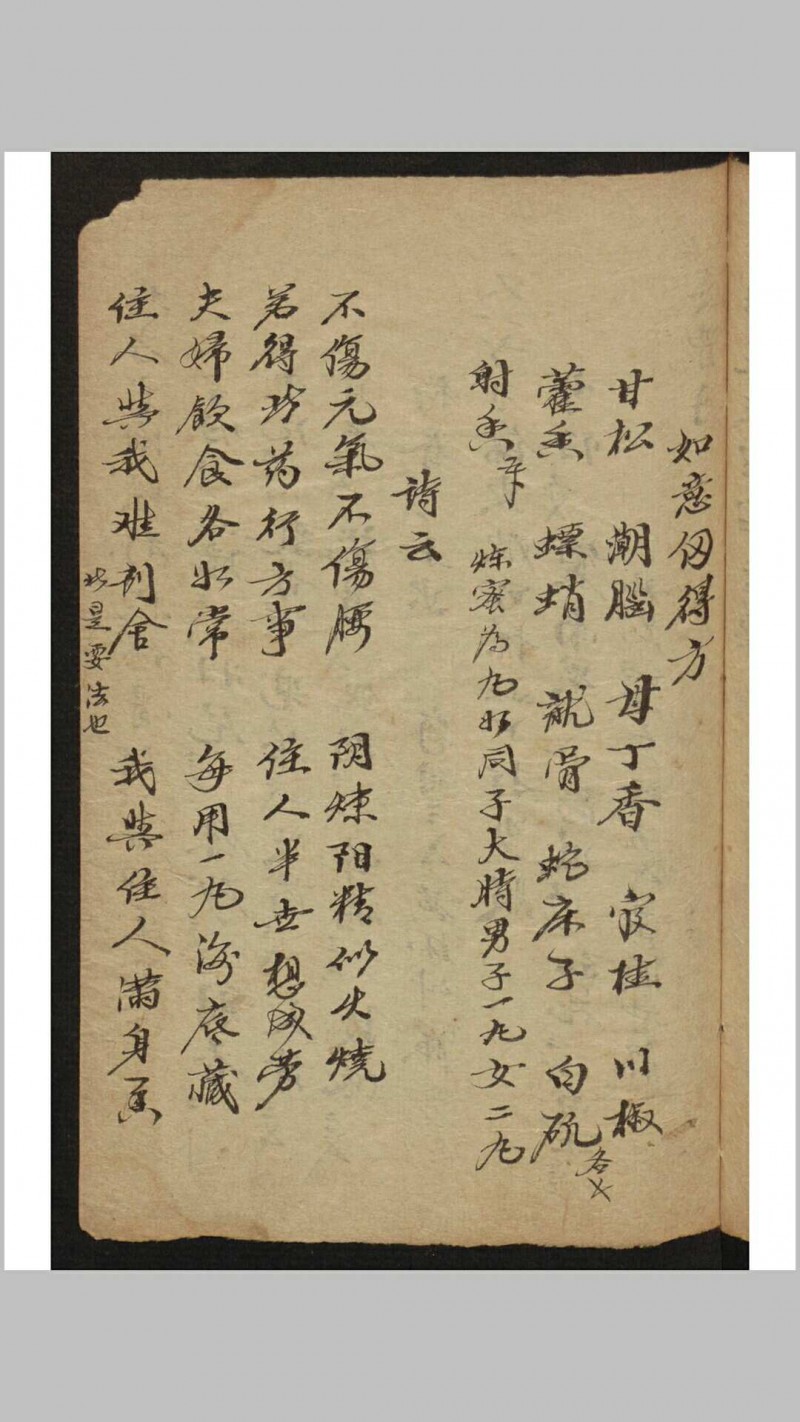 如意㐆得方
甘松 潮腦 母丁香 官桂 川椒
藿香 螵蛸 龍骨 蛇床子 白矾各
射香 煉蜜為丸如同子大時男子一丸女二丸
詩云
不傷元氣不傷腰 阴煉阳精似火燒
若得此药行方事 佳人半世想成劳
夫婦飲食各如常 每用一丸海底藏
佳人與我难割舍 我與佳人满身香
此是要法也